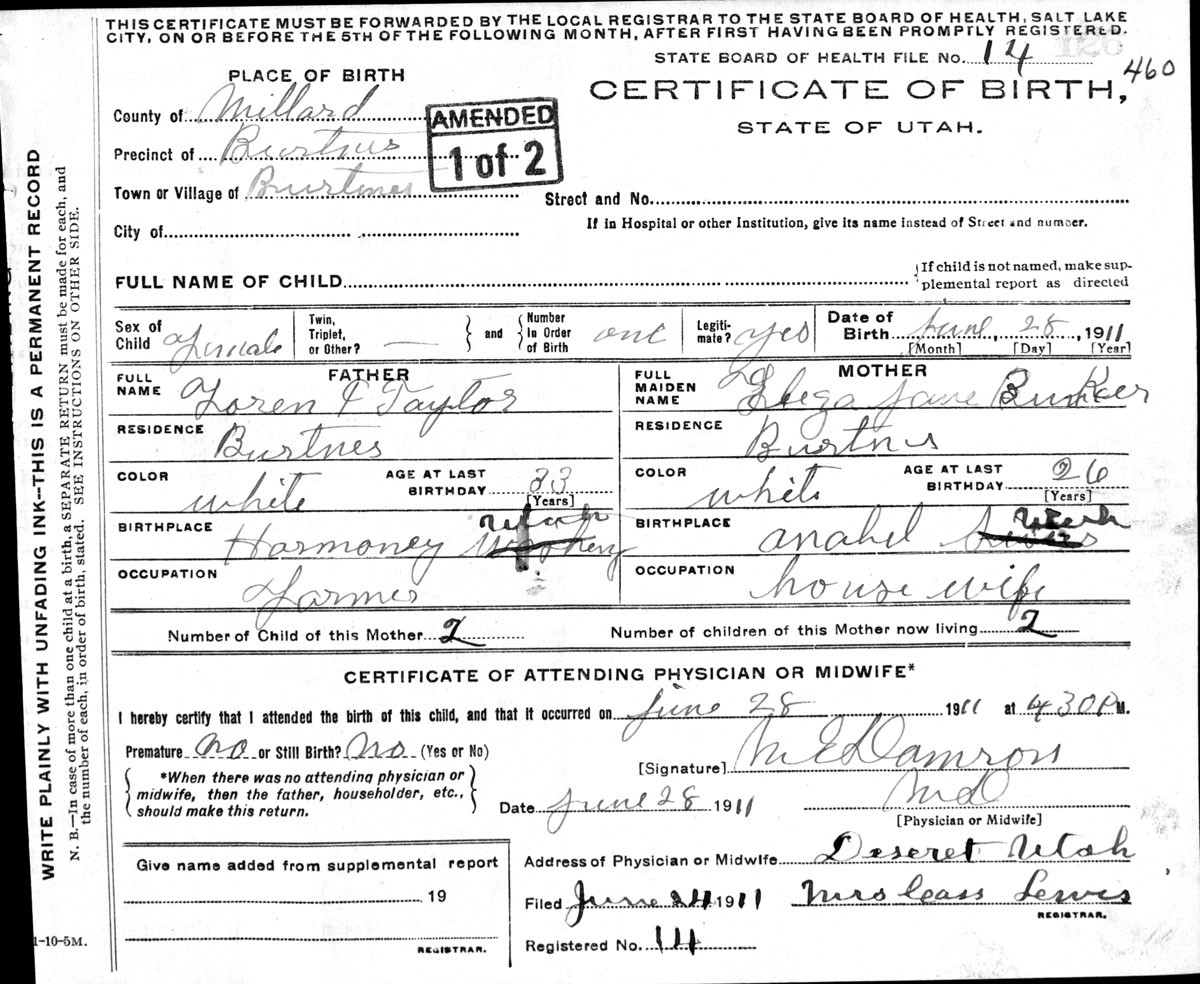 THIS CERTIFICATE MUST BE FORWARDED BY THE LOCAL REGISTRAR TO THE STATE BOARD OF HEALTH, SALT LAKE
CITY, ON OR BEFORE THE 5TH OF THE FOLLOWING MONTH, AFTER FIRST HAVING BEEN PROMPTLY REGISTERED.
STATE BOARD OF HEALTH FILE No. 14
460
PLACE OF BIRTH
CERTIFICATE OF BIRTH,
STATE OF UTAH.
County of Millard
AMENDED
1 of 2
Precinct of Burtnus
Town or Village of Burtnes
Street and No.
City of
If in Hospital or other Institution, give its name instead of Street and number.
FULL NAME OF CHILD
If child is not named, make sup-
plemental report as directed
Sex of Child Female
Twin, Triplet, or Other? —
and
Number In Order of Birth one
Legiti-mate? yes
Date of Birth June 28, 1911
[Month] [Day] [Year]
FATHER
FULL NAME Loren F Taylor
RESIDENCE Burtnes
COLOR white
AGE AT LAST BIRTHDAY 33
[Years]
BIRTHPLACE Harmoney Utah
OCCUPATION Farmer
MOTHER
FULL MAIDEN NAME Eliza Jane Bunker
RESIDENCE Burtnus
COLOR white
AGE AT LAST BIRTHDAY 26
[Years]
BIRTHPLACE anabel Utah
OCCUPATION house wife
Number of Child of this Mother 2
Number of children of this Mother now living 2
CERTIFICATE OF ATTENDING PHYSICIAN OR MIDWIFE*
I hereby certify that I attended the birth of this child, and that it occurred on June 28 1911 at 4 30 P M.
Premature no or Still Birth? No (Yes or No)
[Signature] M E Damron
*When there was no attending physician or
midwife, then the father, householder, etc.,
should make this return.
Date June 28 1911
MD
[Physician or Midwife]
Give name added from supplemental report
19
REGISTRAR.
Address of Physician or Midwife Deseret Utah
Filed June 24 1911 Mrs Cass Lewis
REGISTRAR.
Registered No. 14
1-10-5M.
WRITE PLAINLY WITH UNFADING INK--THIS IS A PERMANENT RECORD
N. B.—In case of more than one child at a birth, a SEPARATE RETURN must be made for each, and
the number of each, in order of birth, stated. SEE INSTRUCTIONS ON OTHER SIDE.